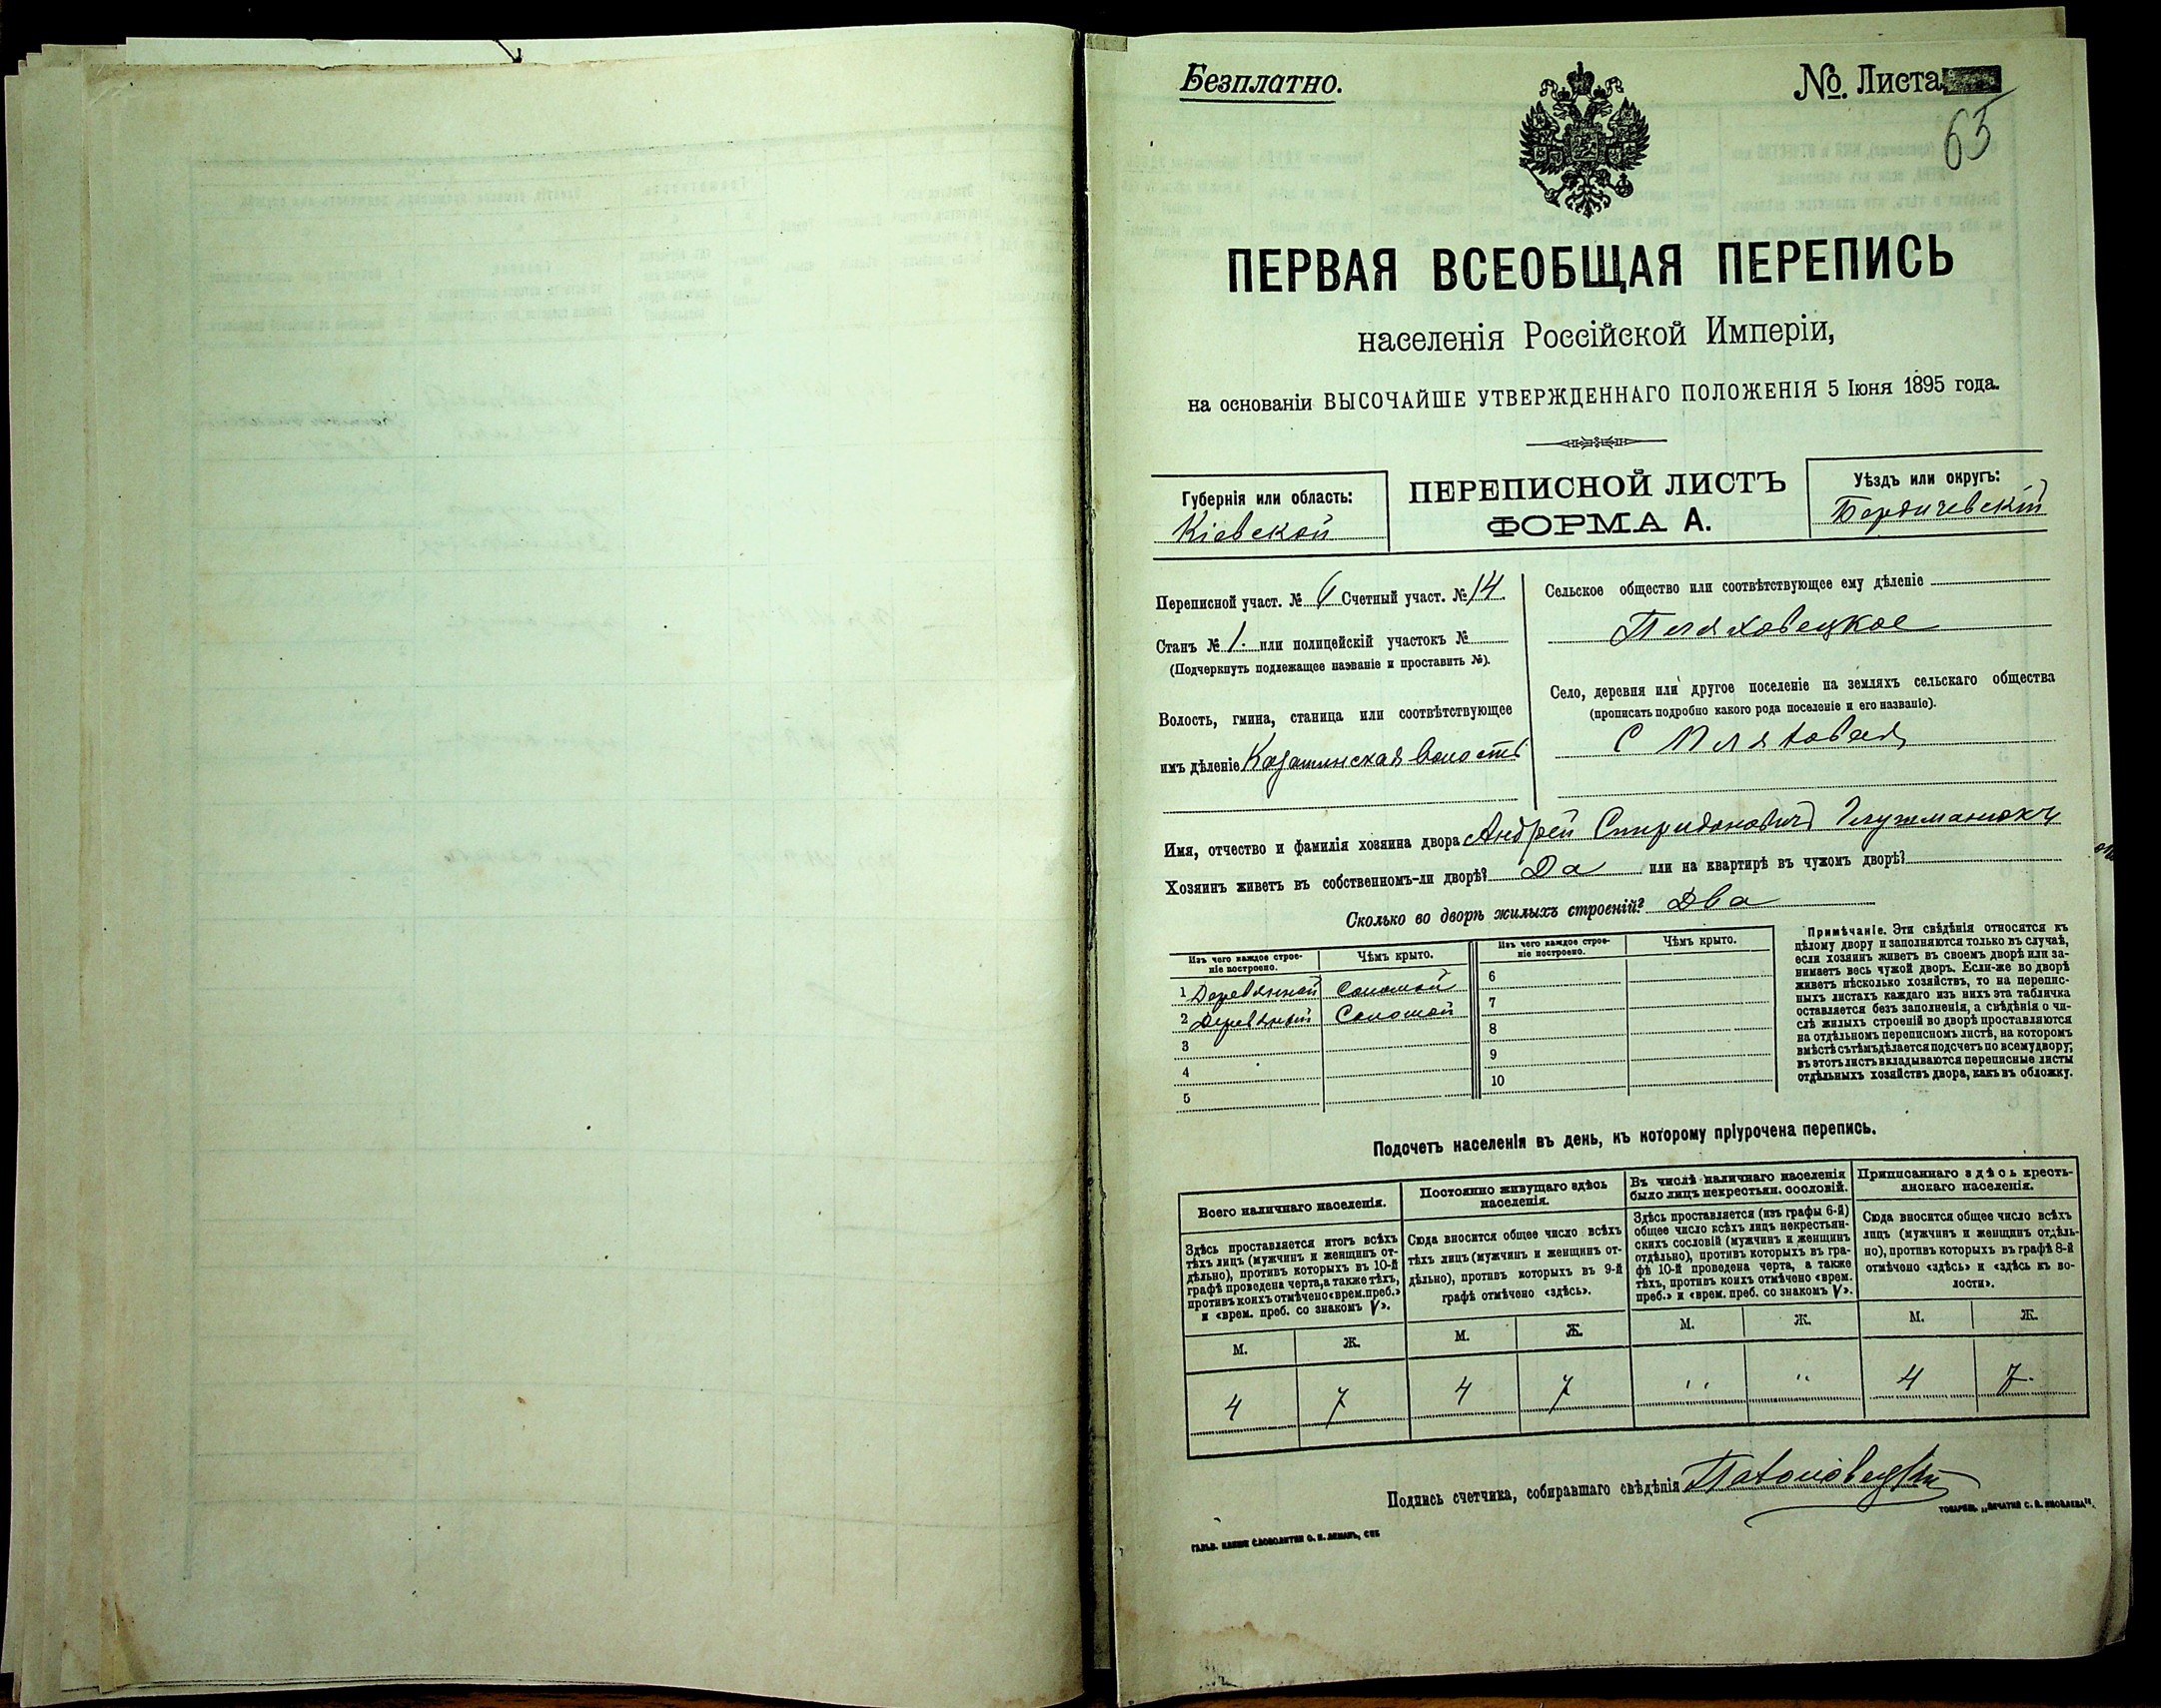 Безплатно.
№ Листа
65
ПЕРВАЯ ВСЕОБЩАЯ ПЕРЕПИСЬ
населенія Россійской Имперіи,
на основаніи ВЫСОЧАЙШЕ УТВЕРЖДЕННАГО ПОЛОЖЕНІЯ 5 Іюня 1895 года.
Губернія или область:
Кіевской
ПЕРЕПИСНОЙ ЛИСТЪ
ФОРМА А.
Уѣздъ или округъ:
Бердичевскій
Переписной участ. № Счетный участ. № 14.
Станъ № 1. или полицейскій участокъ №
(Подчеркнуть подлежащее названіе и проставить №).
Волость, гмина, станица или соотвѣтствующее
имъ дѣленіе Казатинская волость
Сельское общество или соотвѣтствующее ему дѣленіе
Пляховецкое
Село, деревня или другое поселеніе на земляхъ сельскаго общества
(прописать подробно какого рода поселеніе и его названіе).
С Пляховая
Имя, отчество и фамилія хозяина двора Андрей Спиридоновичъ
Хозяинъ живетъ въ собственномъ-ли дворѣ? Да или на квартирѣ въ чужомъ дворѣ?
Сколько во дворѣ жилыхъ строеній? Два
Изъ чего каждое строе-
ніе построено.
Чѣмъ крыто.
1 Деревянной Соломой
2 Деревяной Соломой
3
4
5
Изъ чего каждое строе-
ніе построено.
Чѣмъ крыто.
6
7
8
9
10
Примѣчаніе. Эти свѣдѣнія относятся къ
цѣлому двору и заполняются только въ случаѣ,
если хозяинъ живетъ въ своемъ дворѣ или за-
нимаетъ весь чужой дворъ. Если-же во дворѣ
живетъ нѣсколько хозяйствъ, то на перепис-
ныхъ листахъ каждаго изъ нихъ эта табличка
оставляется безъ заполненія, а свѣдѣнія о чи-
слѣ жилыхъ строеній во дворѣ проставляются
на отдѣльномъ переписномъ листѣ, на которомъ
вмѣстѣ съ тѣмъ дѣлается подсчетъ по всему двору;
въ этотъ листъ вкладываются переписные листы
отдѣльныхъ хозяйствъ двора, какъ въ обложку.
Подочетъ населенія въ день, къ которому пріурочена перепись.
Всего наличнаго населенія.
Здѣсь проставляется итогъ всѣхъ
тѣхъ лицъ (мужчинъ и женщинъ от-
дѣльно), противъ которыхъ въ 10-й
графѣ проведена черта, а также тѣхъ,
противъ коихъ отмѣчено «врем. преб.»
и «врем. преб. со знакомъ V».
М. Ж.
4 7
Постоянно живущаго здѣсь
населенія.
Сюда вносится общее число всѣхъ
тѣхъ лицъ (мужчинъ и женщинъ от-
дѣльно), противъ которыхъ въ 9-й
графѣ отмѣчено «здѣсь».
М. Ж.
4 7
Въ числѣ наличнаго населенія
было лицъ некрестьян. сословій.
Здѣсь проставляется (изъ графы 6-й)
общее число всѣхъ лицъ некрестьян-
скихъ сословій (мужчинъ и женщинъ
отдѣльно), противъ которыхъ въ гра-
фѣ 10-й проведена черта, а также
тѣхъ, противъ коихъ отмѣчено «врем.
преб.» и «врем. преб. со знакомъ V».
М. Ж.
" "
Приписаннаго здѣсь кресть-
янскаго населенія.
Сюда вносится общее число всѣхъ
лицъ (мужчинъ и женщинъ отдѣль-
но), противъ которыхъ въ графѣ 8-й
отмѣчено «здѣсь» и «здѣсь къ во-
лости».
М. Ж.
4 7.
Подпись счетчика, собиравшаго свѣдѣнія
ТОВАРИЩ. „ПЕЧАТНЯ С. П. ЯКОВЛЕВА“.
ГАЛЬВ. КЛИШЕ СЛОВОЛИТНИ О. И. ЛЕМАНЪ, СПБ